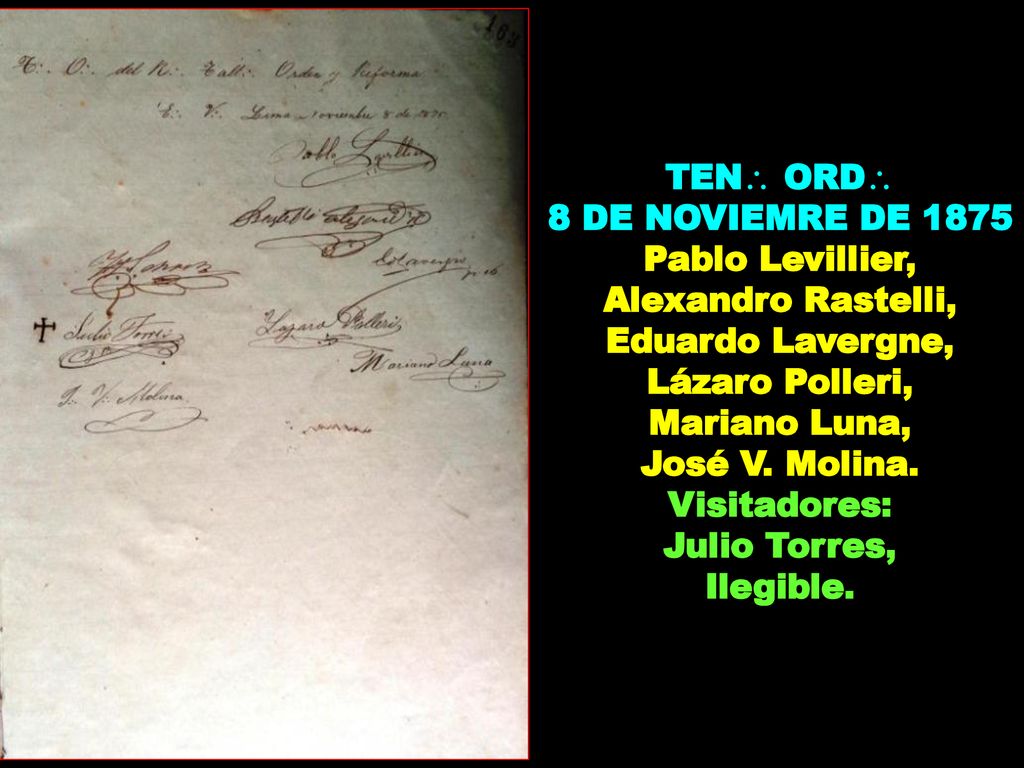 163
T∴ O∴ del R∴ Tall∴ Orden y Reforma
E∴ V∴ Lima Noviembre 8 de 1875
Pablo Levillier
Rastelli
E Lavergne
Julio Torres
Lazaro Polleri
Mariano Luna
J∴ V∴ Molina
TEN∴ ORD∴
8 DE NOVIEMRE DE 1875
Pablo Levillier,
Alexandro Rastelli,
Eduardo Lavergne,
Lázaro Polleri,
Mariano Luna,
José V. Molina.
Visitadores:
Julio Torres,
Ilegible.